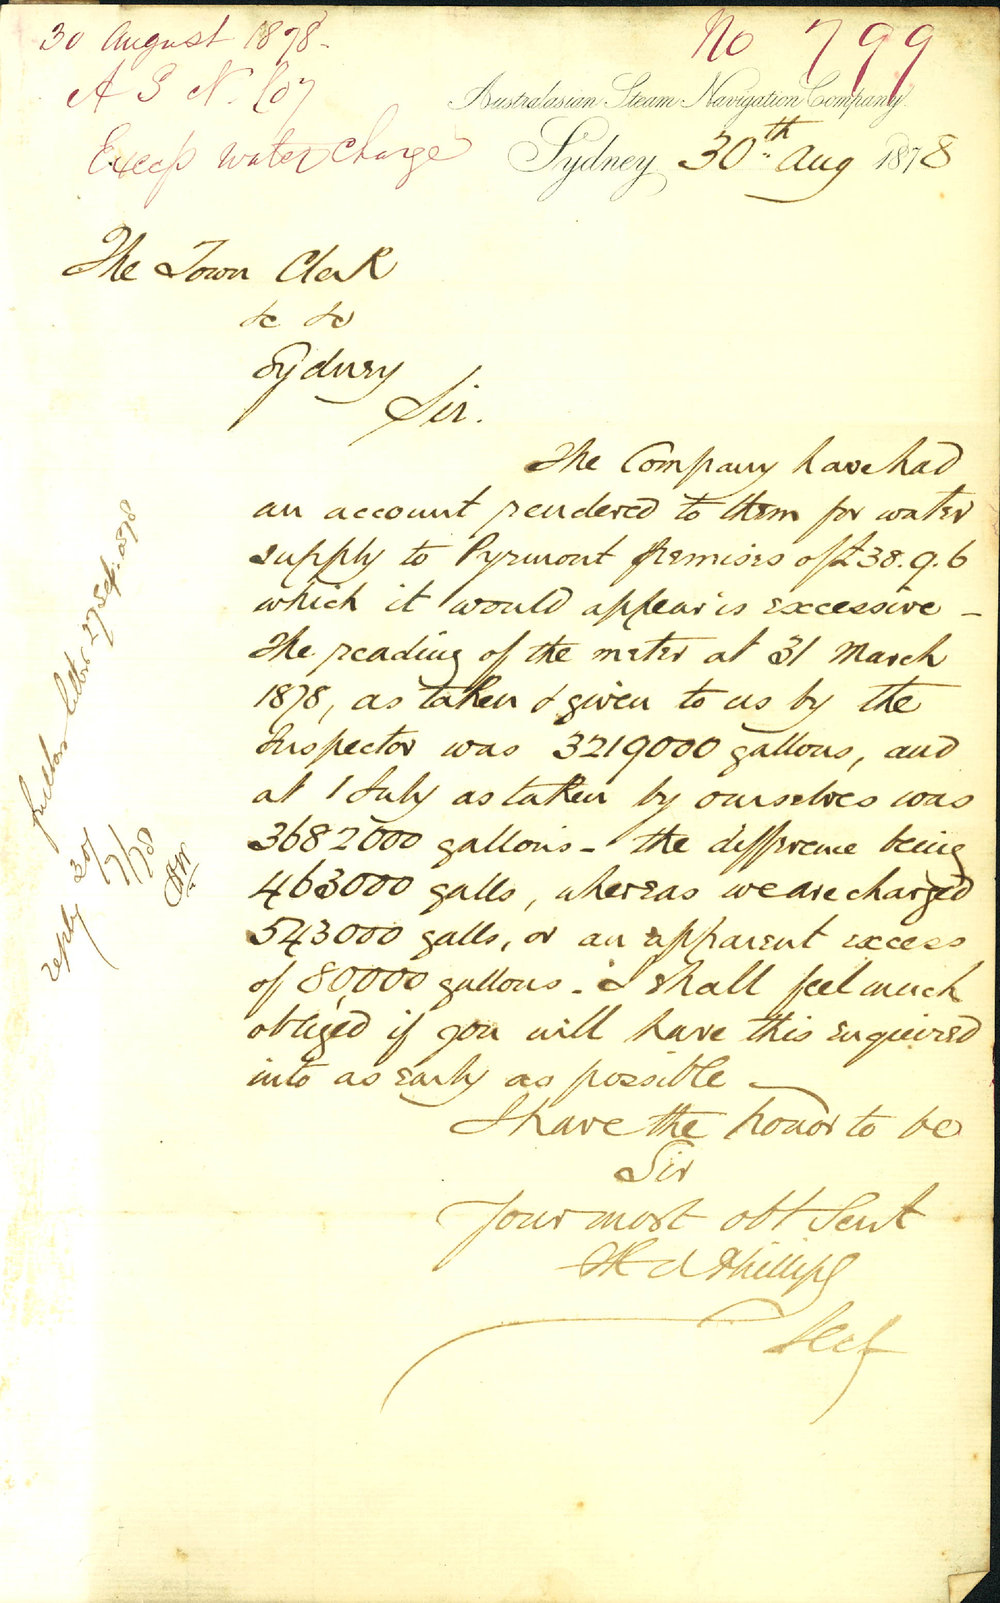 30 August 1878.
No 799
A S N. Coy
Australasian Steam Navigation Company.
Excess water charge
Sydney 30th Aug 1878
The Town Clerk
&c &c
Sydney
Sir.
The Company have had
an account rendered to them for water
supply to Pyrmont premises of £38.9.6
which it would appear is excessive –
The reading of the meter at 31 March
1878, as taken & given to us by the
Inspector was 3219000 gallons, and
at 1 July as taken by ourselves was
3682000 gallons – the difference being
463000 galls, whereas we are charged
543000 galls, or an apparent excess
of 80,000 gallons – I shall feel much
obliged if you will have this enquired
into as early as possible –
I have the honor to be
Sir
Your most obt Servt
Phillips
Secy
further letter 27 Sep. 1878
reply